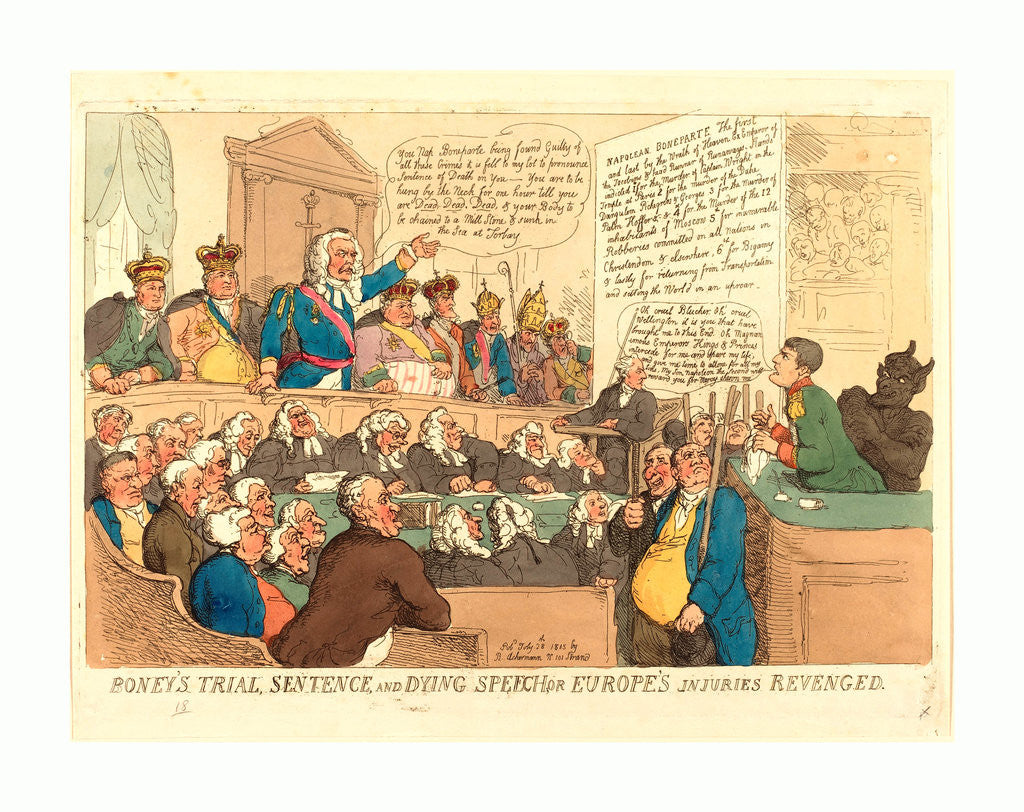 You Nap Boneparte being found Guilty of
all these Crimes it is fell to my lot to pronounce
Sentence of Death on You — You are to be
hung by the Neck for one hour till you
are Dead, Dead, Dead, & your Body to
be chained to a Mill Stone & sunk in
the Sea at Torbay
NAPOLEAN BONEPARTE The first
and last by the Wrath of Heaven Ex Emperor of
the Jacobins & head Runner of Runaways, Stands
indicted 1st for the Murder of Captain Wright in the
Temple at Paris 2d for the murder of the Duke
Dangulem Pichegrue & Georges 3d for the Murder of
Palm Hoffer & & 4th for the Murder of the 12
inhabitants of Moscow 5th for inumerable
Robberies committed on all Nations in
Christendom & elsewhere, 6th for Bigamy
& lastly for returning from Transportation
and setting the World in an uproar —
Oh cruel Blucher, Oh cruel
Wellington it is you that have
brought me to this End. Oh Magnan
imous Emperors Kings & Princes
intercede for me and spare my life,
and give me time to attone for all my
Sins, My Son Napoleon the Second will
reward you for Mercy shewn me
Pub July 28th 1815 by
R. Ackermann N 101 Strand
BONEY'S TRIAL, SENTENCE, AND DYING SPEECH, OR EUROPE'S INJURIES REVENGED.
18
x